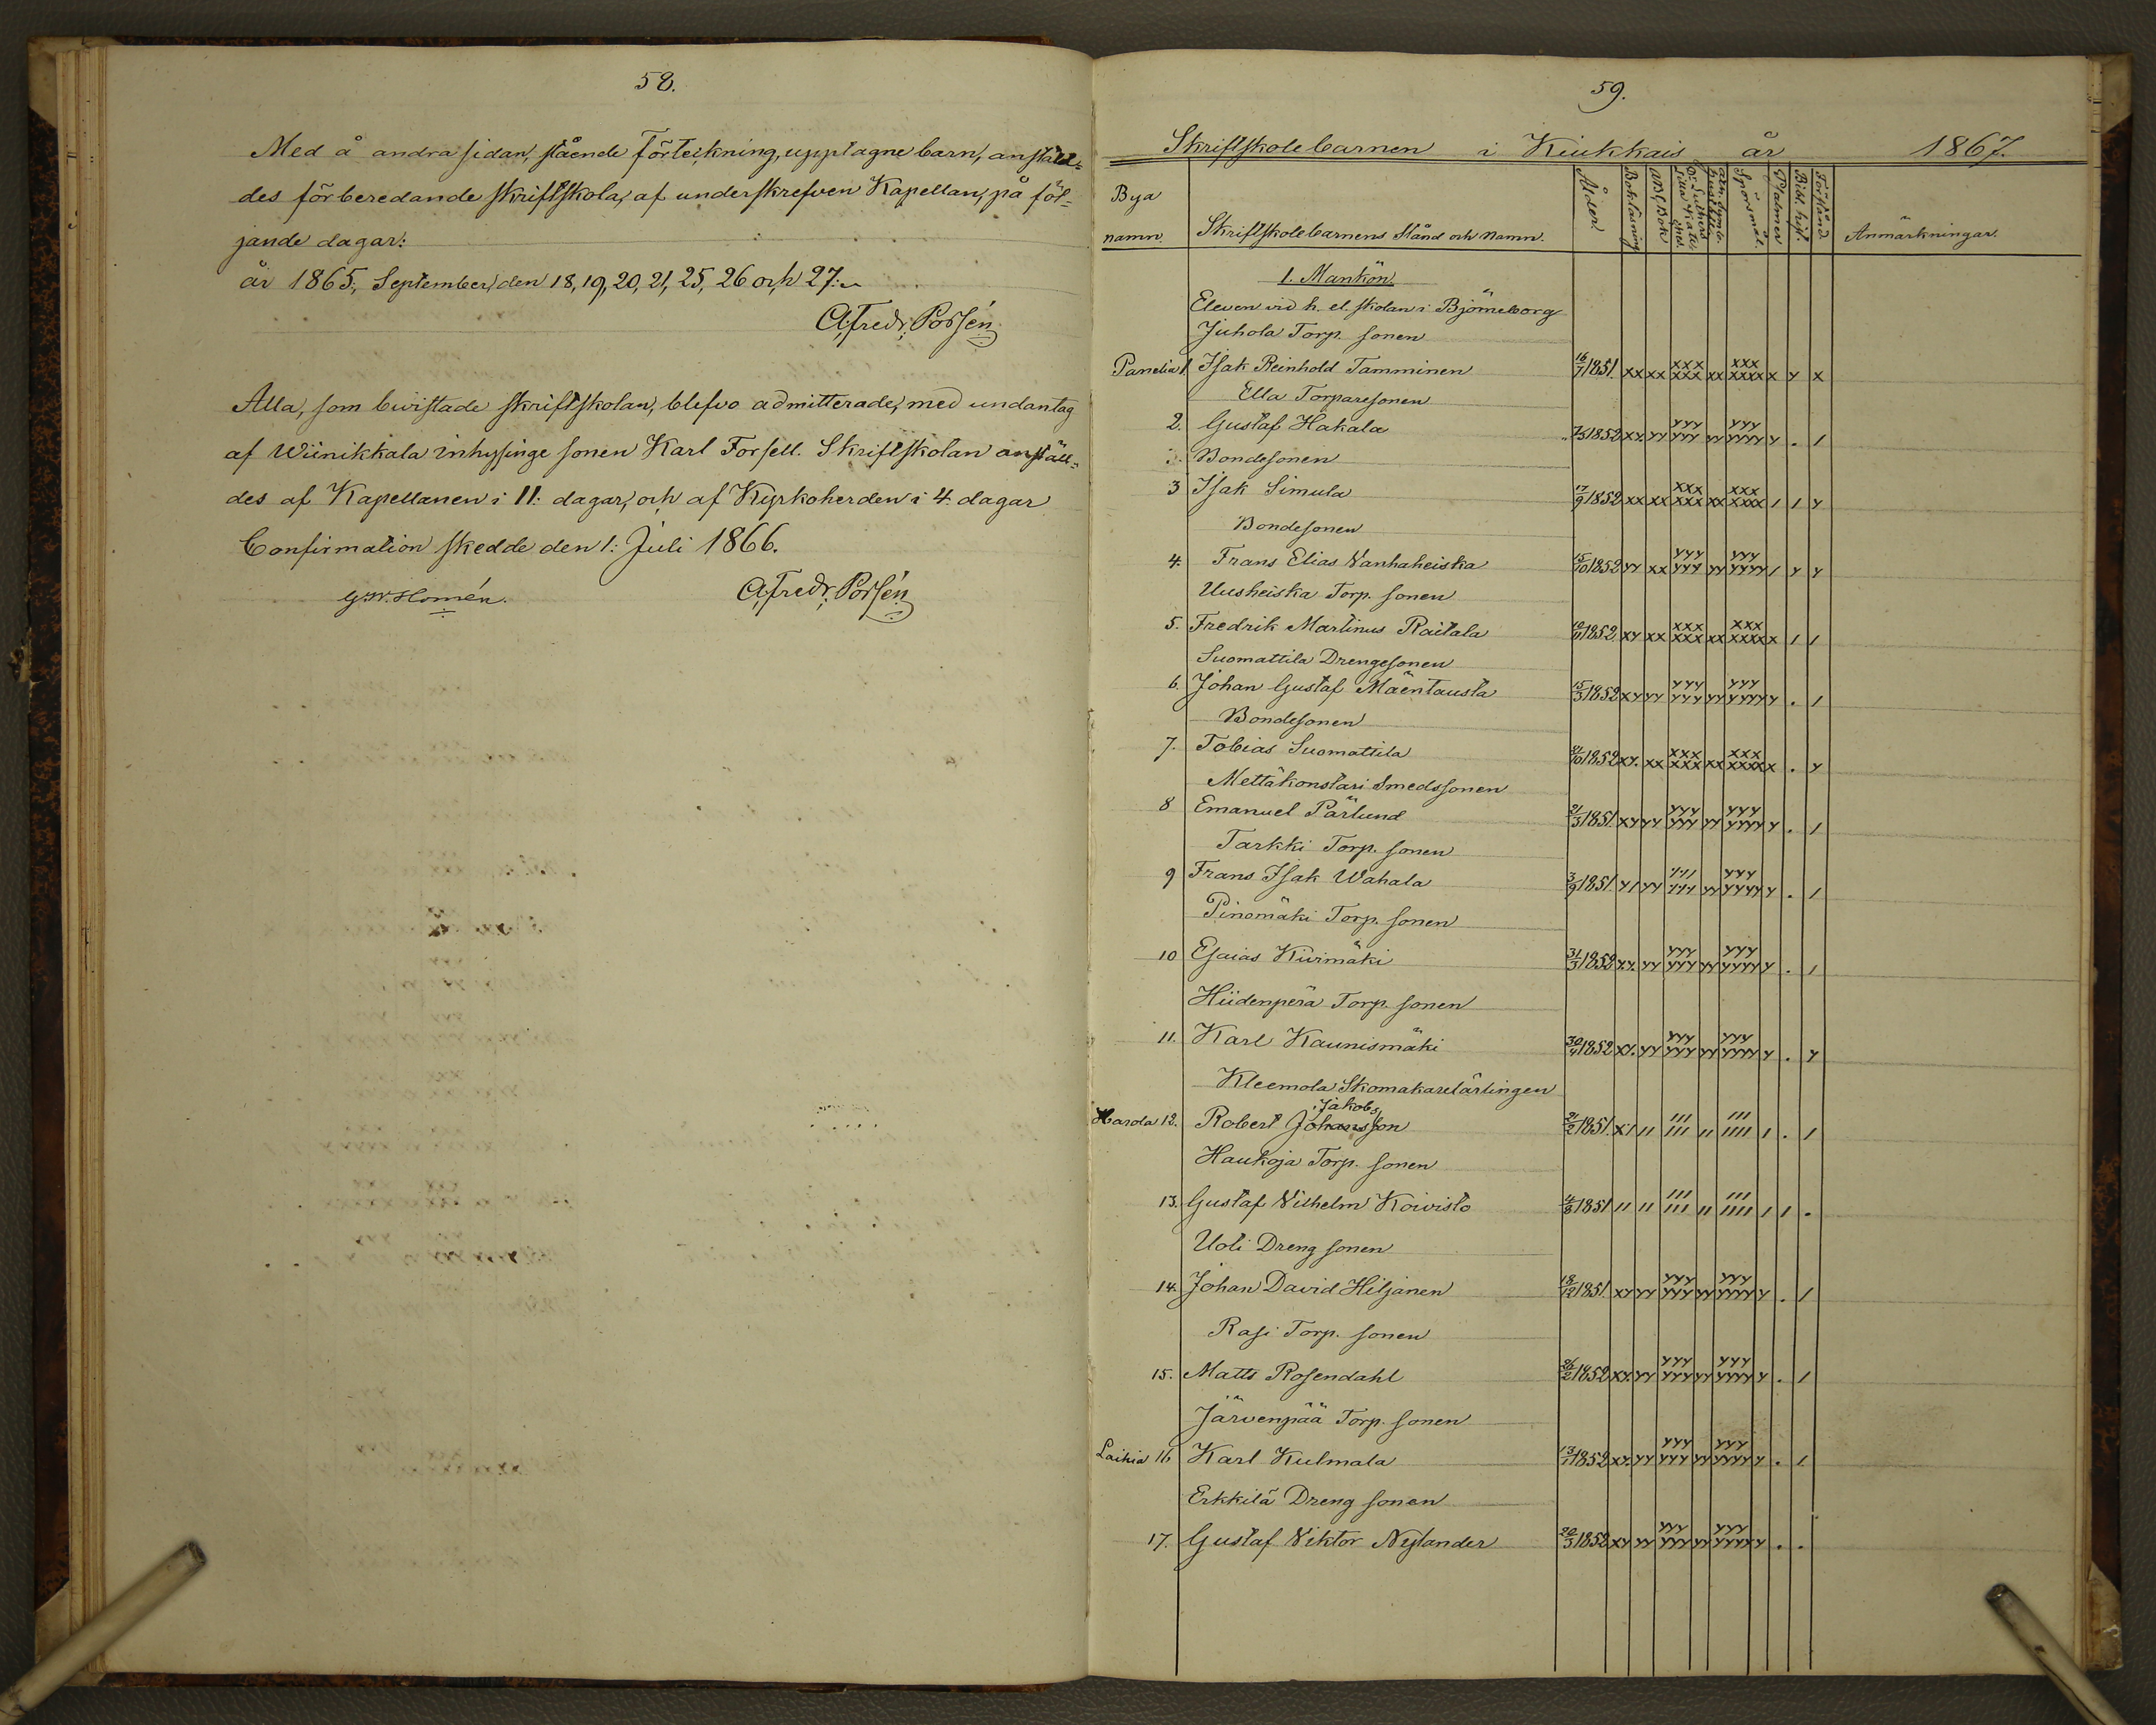 58.
Med å andra sidan, stående Förteckning, upptagne barn, anstäld=
des förberedande skriftskola, af underskrefven Kapellan, på föl=
jande dagar:
år 1865, September, den 18, 19, 20, 21, 25, 26 och 27:
A, Fredr: Porsén
Alla, som bivistade skriftskolan, blefvo admitterade, med undantag
af Wiinikkala inhysinge sonen Karl Forsell. Skriftskolan anställ=
des af Kapellanen i 11: dagar, och af Kyrkoherden i 4. dagar
Confirmation skedde den 1: Juli 1866.
G.W. Homén. A, Fredr: Porsén
59.
Skriftskolebarnen i Kiukkais år 1867.
Bya namn. Skriftskolebarnens stånd och namn. Ålder Bokläsning ABC Bok Dr. Luthers Lilla Kateches Spörsmål. Psalmer Bibl. hist. Förstånd Anmärkningar.
1. Mankön.
Eleven vid h. el. skolan i Björneborg
Juhola Torp. sonen
Panelia 1. Isak Reinhold Tamminen 16/7 1851. xx xx xxx xxx xx xxx xxxx x y x
Ella Torparesonen
2. Gustaf Hakala 1852 xy. yy yyy yyy yy yyy yyyy y . /
Bondesonen
3 Isak Simula 17/9 1852 xx xx xxx xxx xx xxx xxxx / / y
Bondesonen
4. Frans Elias Vanhaheiska 15/10 1852 yy xx yyy yyy yy yyy yyyy / y y
Uusheiska Torp. sonen
5. Fredrik Martinus Raitala 1852. xy xx xxx xxx xx xxx xxxx x / /
Suomattila Drengesonen
6. Johan Gustaf Mäentausta 15/3 1852 xy yy yyy yyy yy yyy yyyy y . /
Bondesonen
7. Tobias Suomattila 1852 xy. xx xxx xxx xx xxx xxxx x . y
Mettäkonstari Smedssonen
8 Emanuel Pärlund 21/3 1851. xy yy yyy yyy yy yyy yyyy y . /
Tarkki Torp. sonen
9 Frans Isak Wahala 3/9 1851. y/ yy yyy yy yyy yyyy y . /
Pinomäki Torp. sonen
10 Esaias Kiirimäki 31/3 1852 xy. yy yyy yyy yy yyy yyyy y . /
Hiidenperä Torp. sonen
11. Karl Kaunismäki 1852 xy. yy yyy yyy yy yyy yyyy y . y
Kleemola Skomakarelärlingen
Jakobs
Harola 12. Robert Johansson 1851. x/ // /// /// // /// //// / . /
Haukoja Torp. sonen
13. Gustaf Vilhelm Koivisto 1851 // // /// /// // /// //// / / .
Uoti Dreng sonen
14. Johan David Hiljanen 18/12 1851. xy yy yyy yyy yy yyy yyyy y . /
Rasi Torp. sonen
15. Matts Rosendahl 26/2 1852 xy. yy yyy yyy yy yyy yyyy y . /
Järvenpää Torp. sonen
Laihia 16 Karl Kulmala 13/1 1852 xy. yy yyy yyy yy yyy yyyy y . /
Erkkilä Dreng sonen
17. Gustaf Viktor Nylander 20/3 1852 xy yy yyy yyy yy yyy yyyy y . .